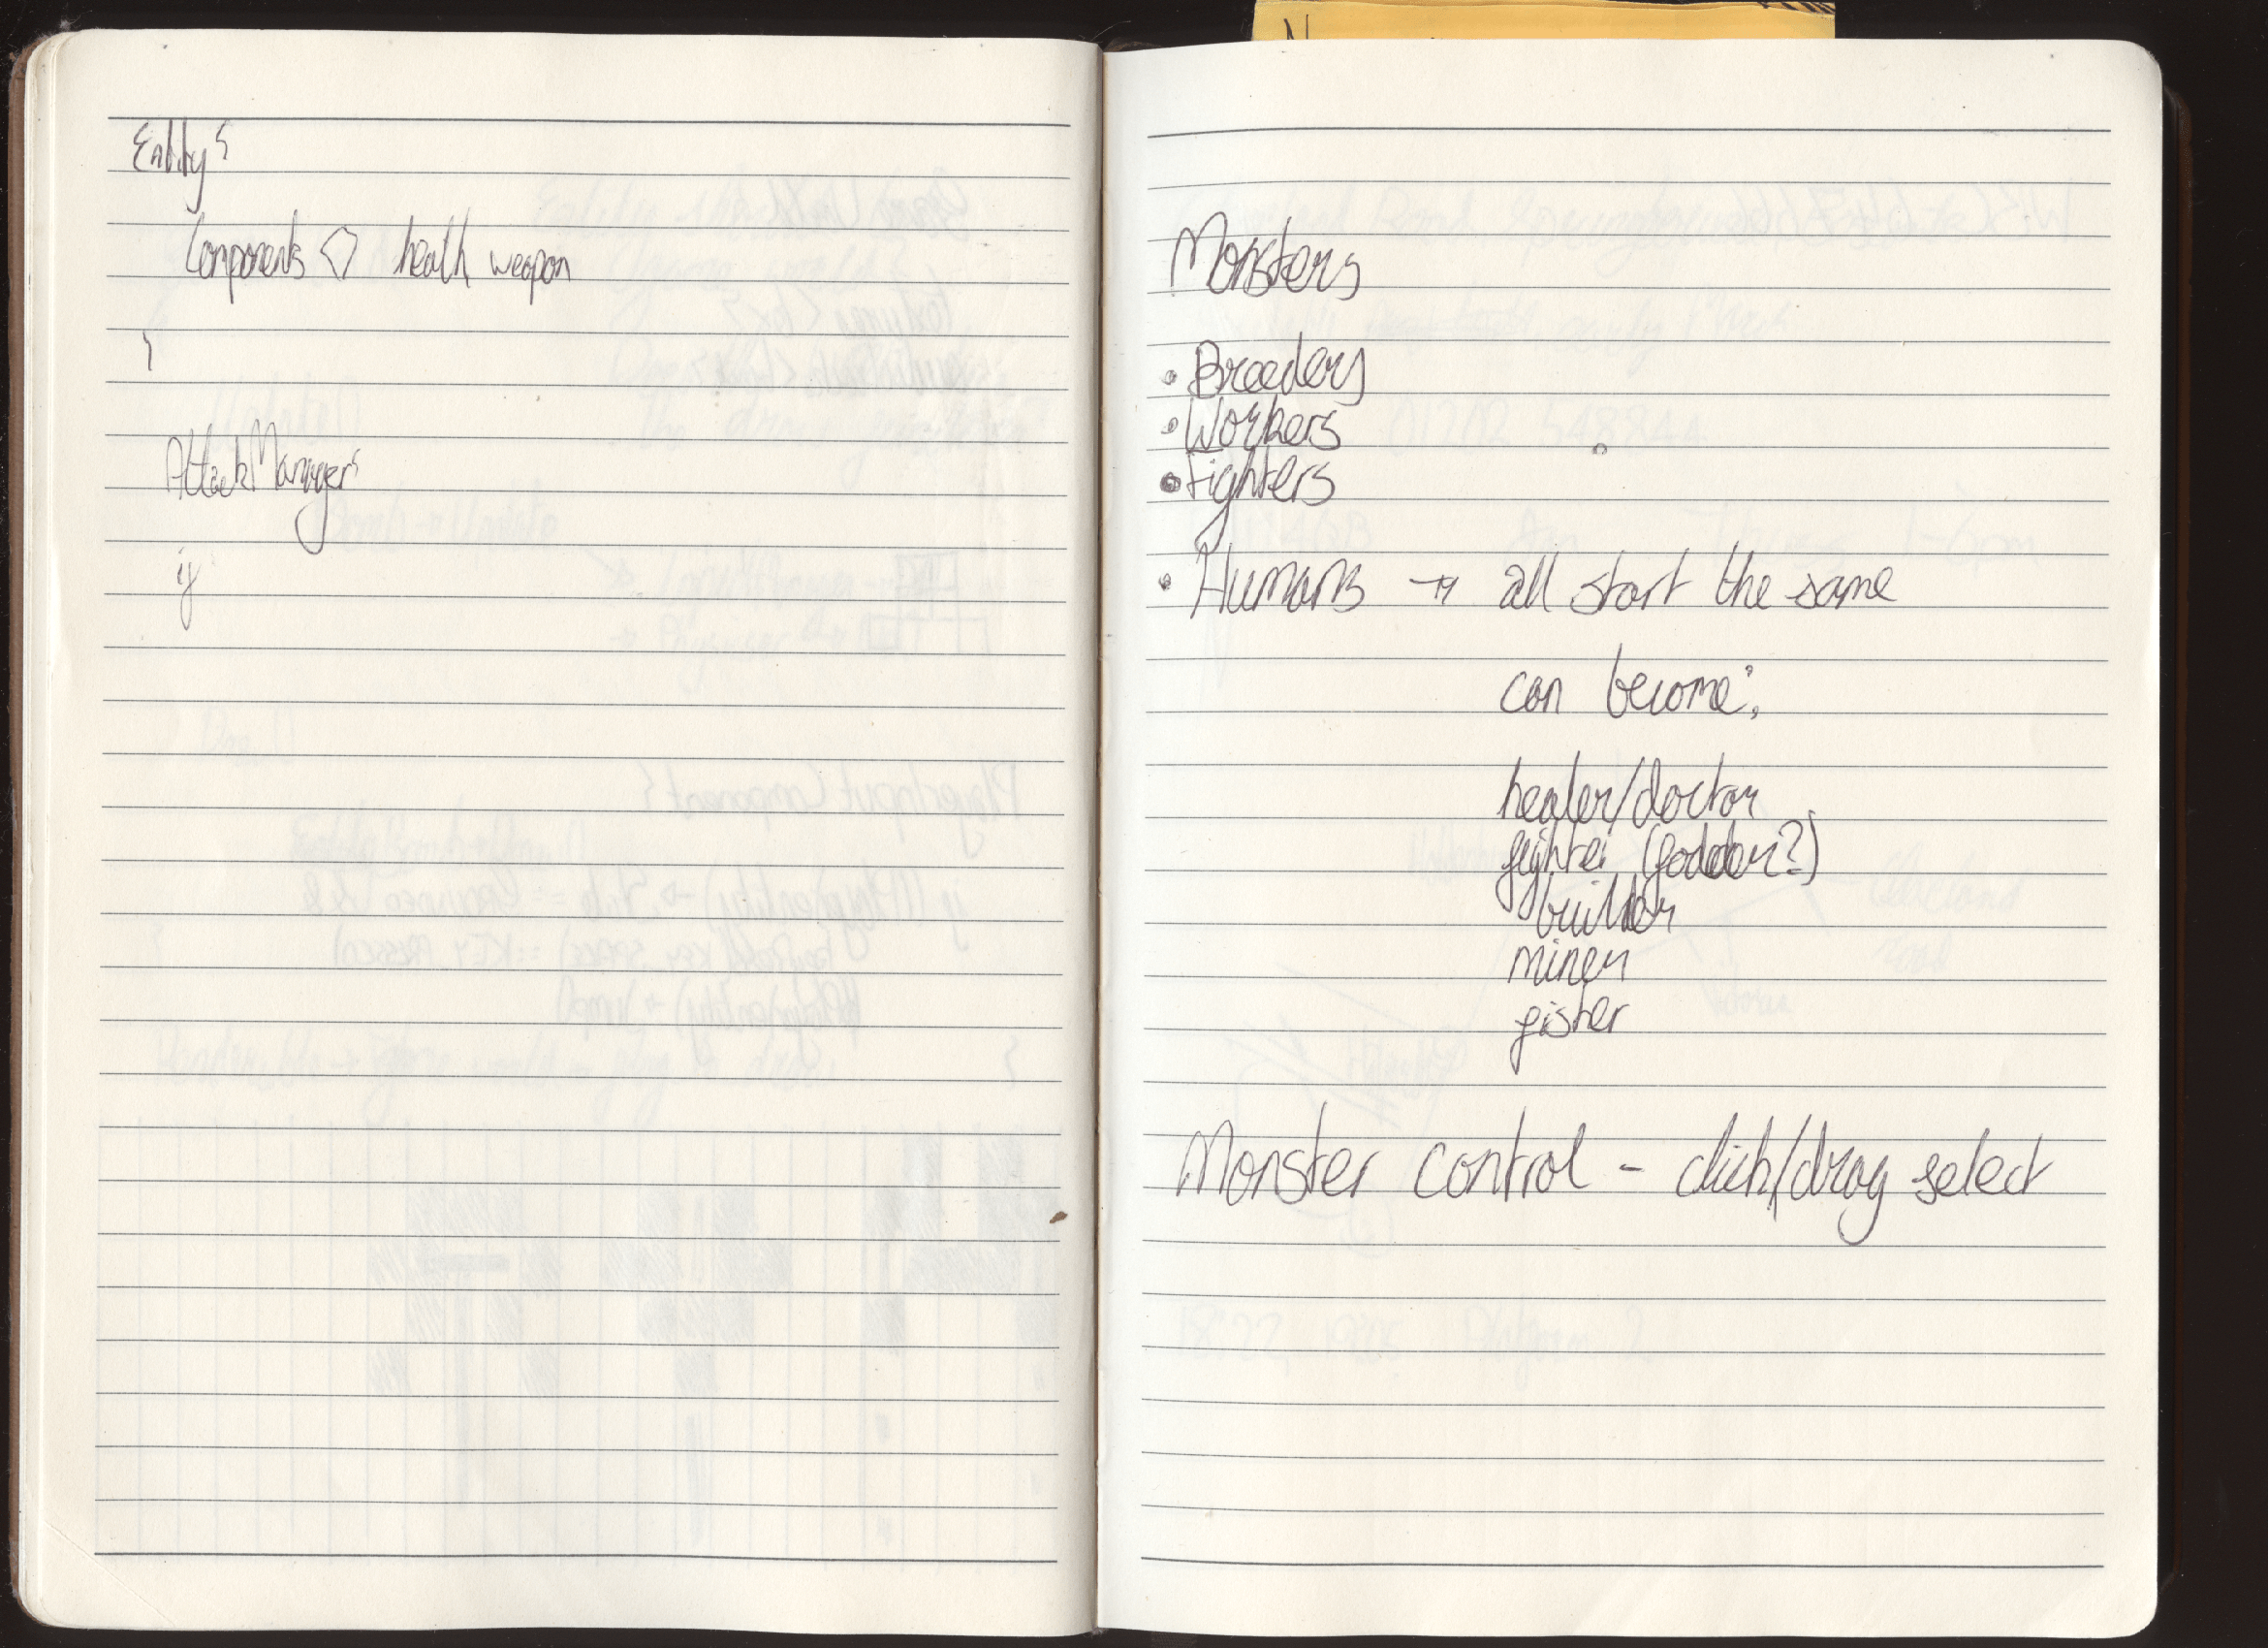 Entity {
Components <> health weapon
}
AttackManager {
if
N
Monsters
• Breeders
• Workers
• Fighters
• Humans → all start the same
can become:
healer/doctor
fighter (fodder?)
builder
miner
fisher
Monster control - click/drag select